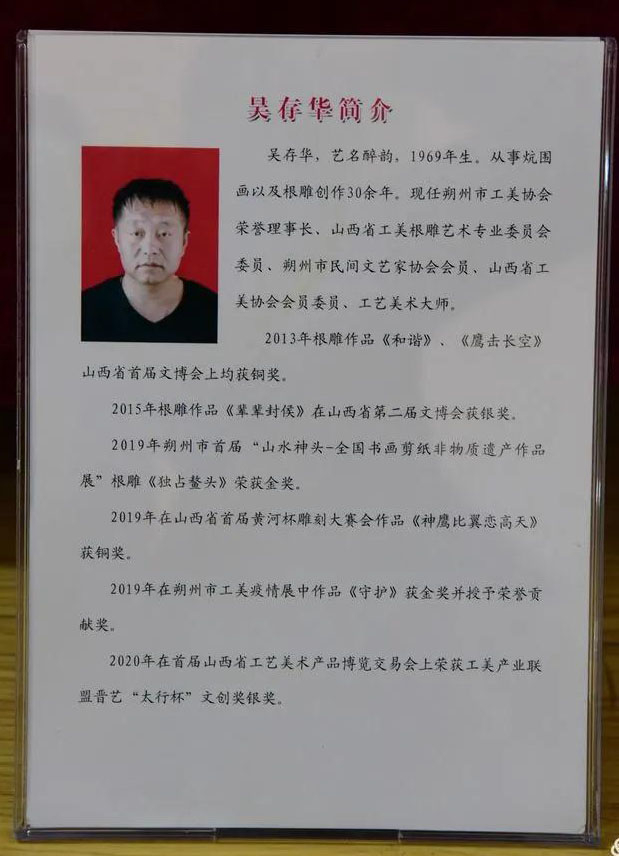 吴存华简介
吴存华，艺名醉韵，1969年生。从事炕围
画以及根雕创作30余年。现任朔州市工美协会
荣誉理事长、山西省工美根雕艺术专业委员会
委员、朔州市民间文艺家协会会员、山西省工
美协会会员委员、工艺美术大师。
2013年根雕作品《和谐》、《鹰击长空》
山西省首届文博会上均获铜奖。
2015年根雕作品《辈辈封侯》在山西省第二届文博会获银奖。
2019年朔州市首届“山水神头-全国书画剪纸非物质遗产作品
展”根雕《独占鳌头》荣获金奖。
2019年在山西省首届黄河杯雕刻大赛会作品《神鹰比翼恋高天》
获铜奖。
2019年在朔州市工美疫情展中作品《守护》获金奖并授予荣誉贡
献奖。
2020年在首届山西省工艺美术产品博览交易会上荣获工美产业联
盟晋艺“太行杯”文创奖银奖。